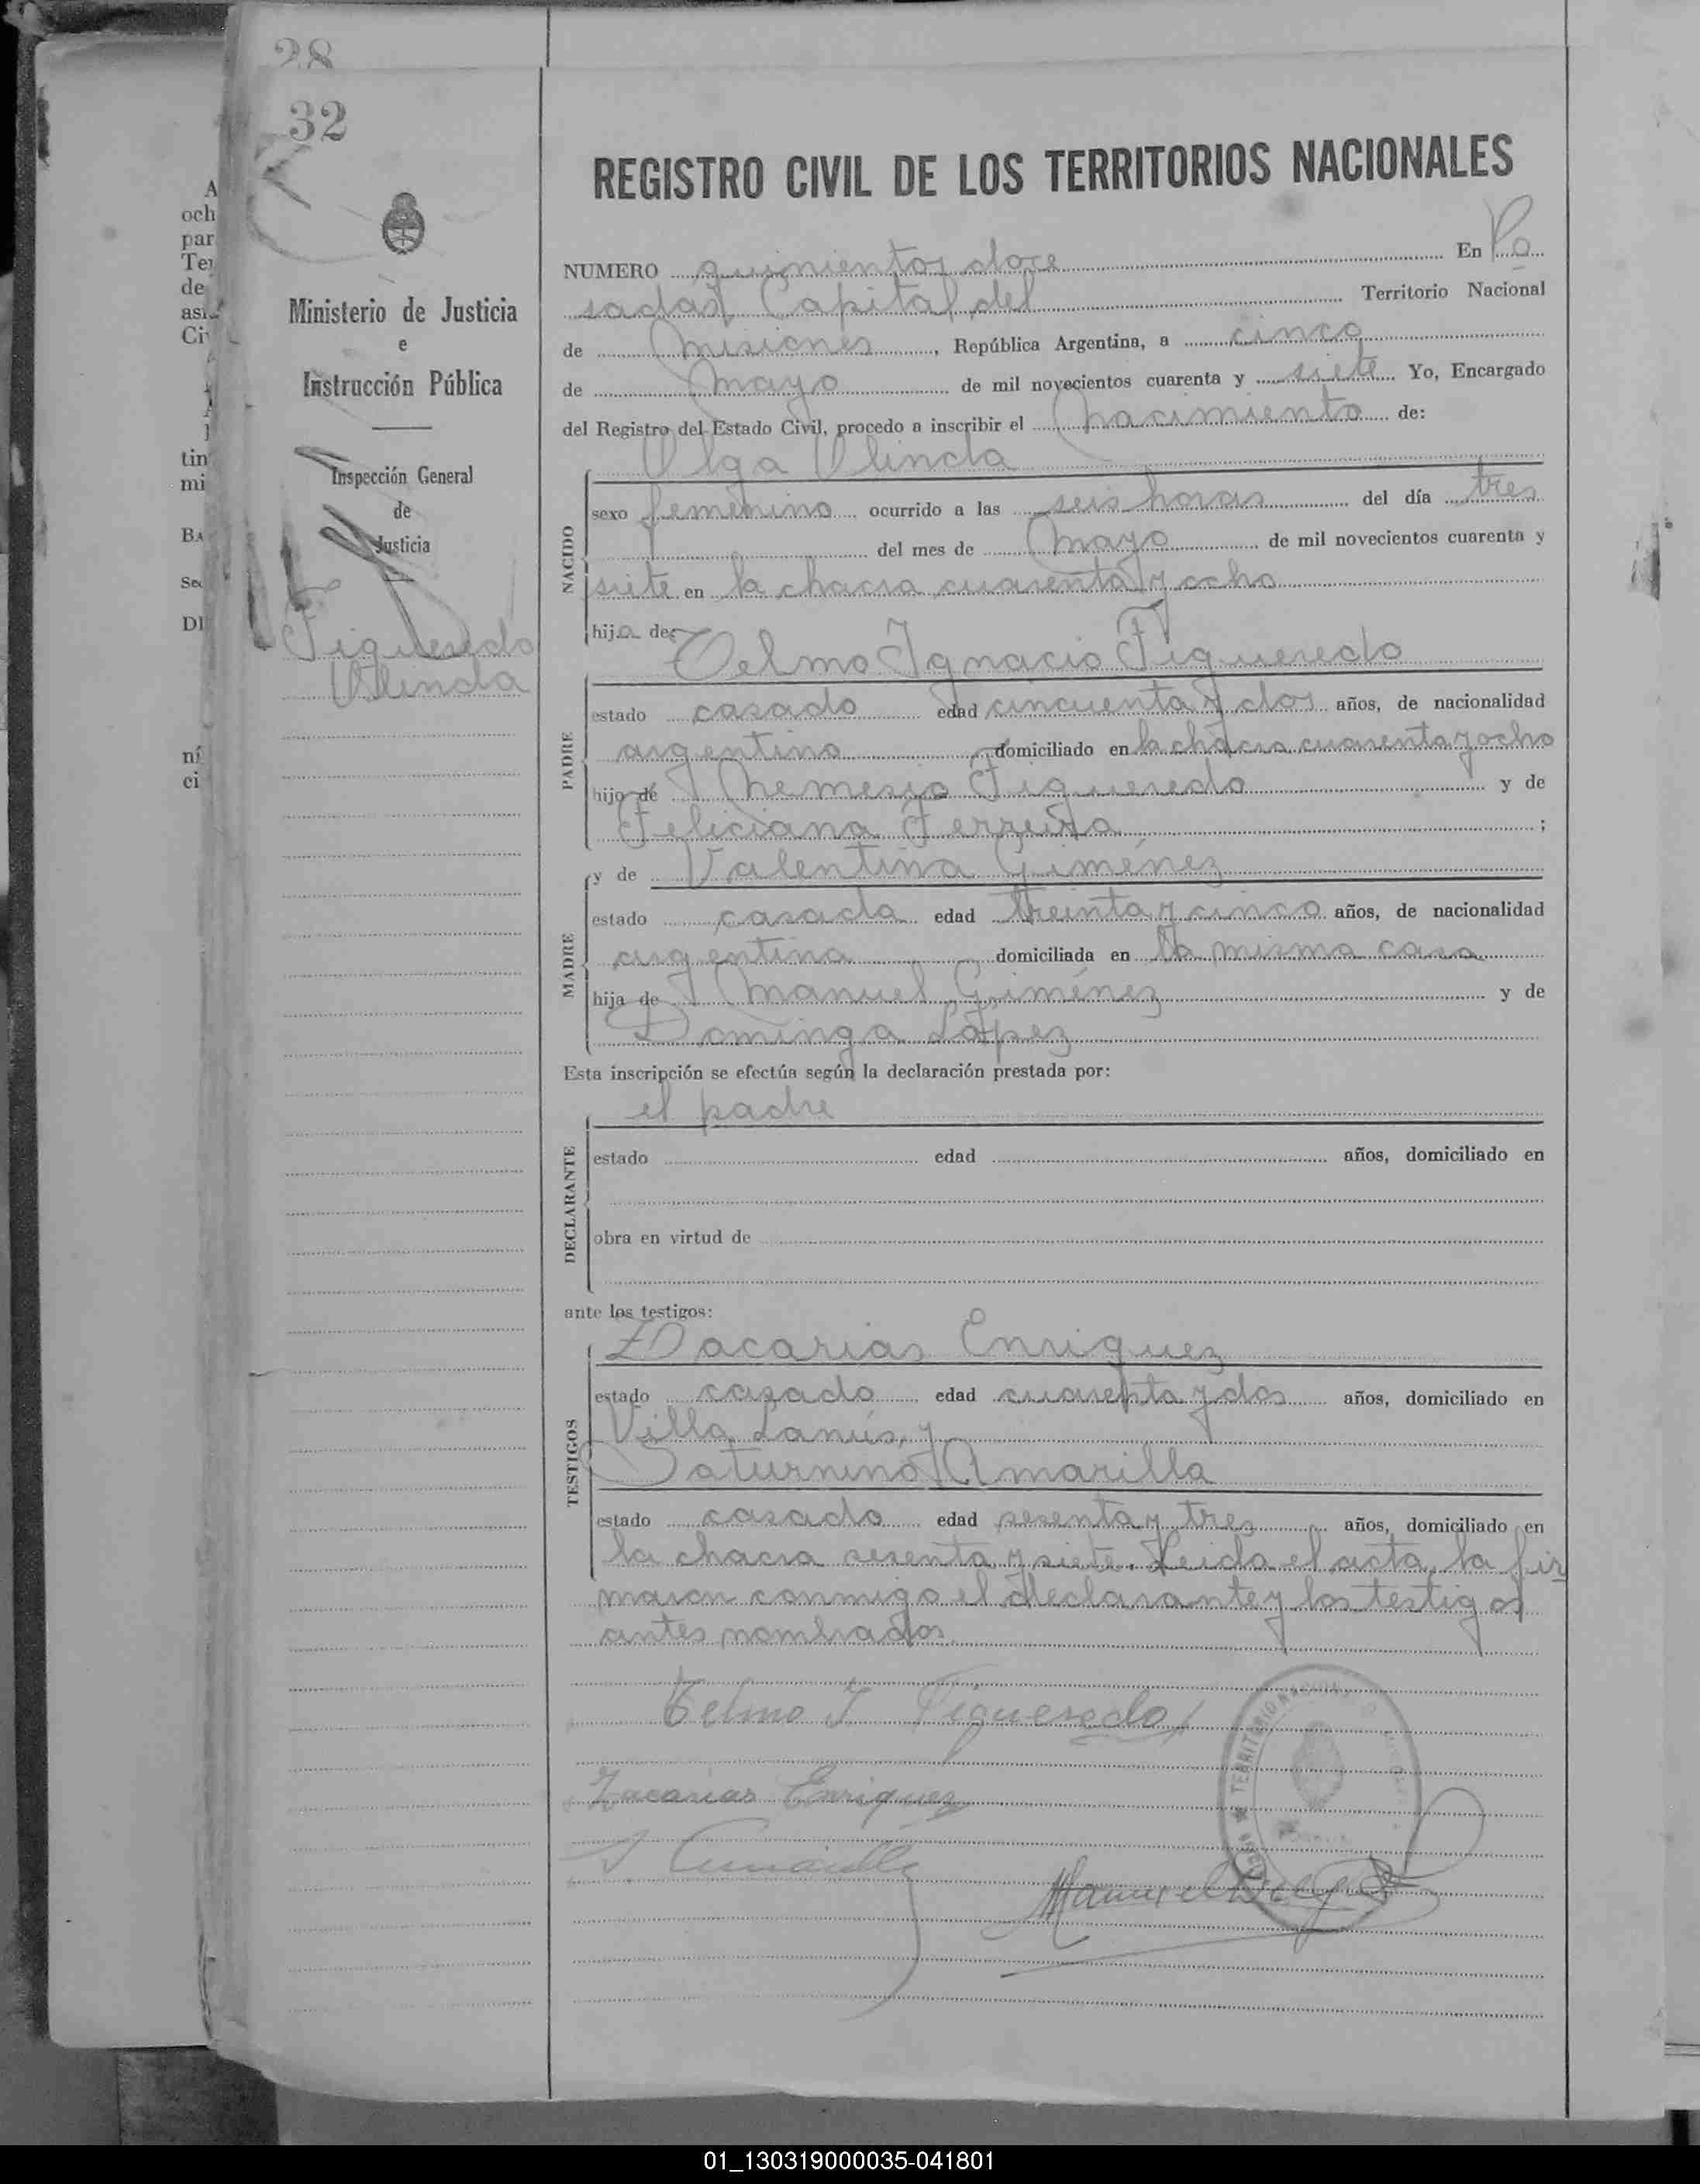 28
32
A
och
par
Ter
de
asi
Ci
tin
mi
BA
Sec
DI
ni
ci
Ministerio de Justicia
e
Instrucción Pública
Inspección General
de
Justicia
Figueredo
Olinda
REGISTRO CIVIL DE LOS TERRITORIOS NACIONALES
NUMERO quinientos doce En Po
sadas Capital del Territorio Nacional
de Misiones, República Argentina, a cinco
de Mayo de mil novecientos cuarenta y siete Yo, Encargado
del Registro del Estado Civil, procedo a inscribir el nacimiento de:
Olga Olinda
NACIDO
sexo femenino ocurrido a las seis horas del día tres
del mes de Mayo de mil novecientos cuarenta y
siete en la chacra cuarenta y ocho
hija de:
Telmo Ignacio Figueredo
PADRE
estado casado edad cincuenta y dos años, de nacionalidad
argentino domiciliado en la chacra cuarenta y ocho
hijo de Nemesio Figueredo y de
Feliciana Ferreira ;
y de Valentina Giménez
MADRE
estado casada edad treinta y cinco años, de nacionalidad
argentina domiciliada en la misma casa
hija de Manuel Giménez y de
Dominga López
Esta inscripción se efectúa según la declaración prestada por:
el padre
DECLARANTE
estado edad años, domiciliado en
obra en virtud de
ante los testigos:
Zacarias Enriquez
TESTIGOS
estado casado edad cuarenta y dos años, domiciliado en
Villa Lanús, y
Saturnino Amarilla
estado casado edad sesenta y tres años, domiciliado en
la chacra sesenta y siete. Leida el acta, la fir
maron conmigo el declarante y los testigos
antes nombrados
Telmo I Figueredo
Zacarias Enriquez
S Amarilla
TERRITORIO NACIONAL
Manuel
01_130319000035-041801